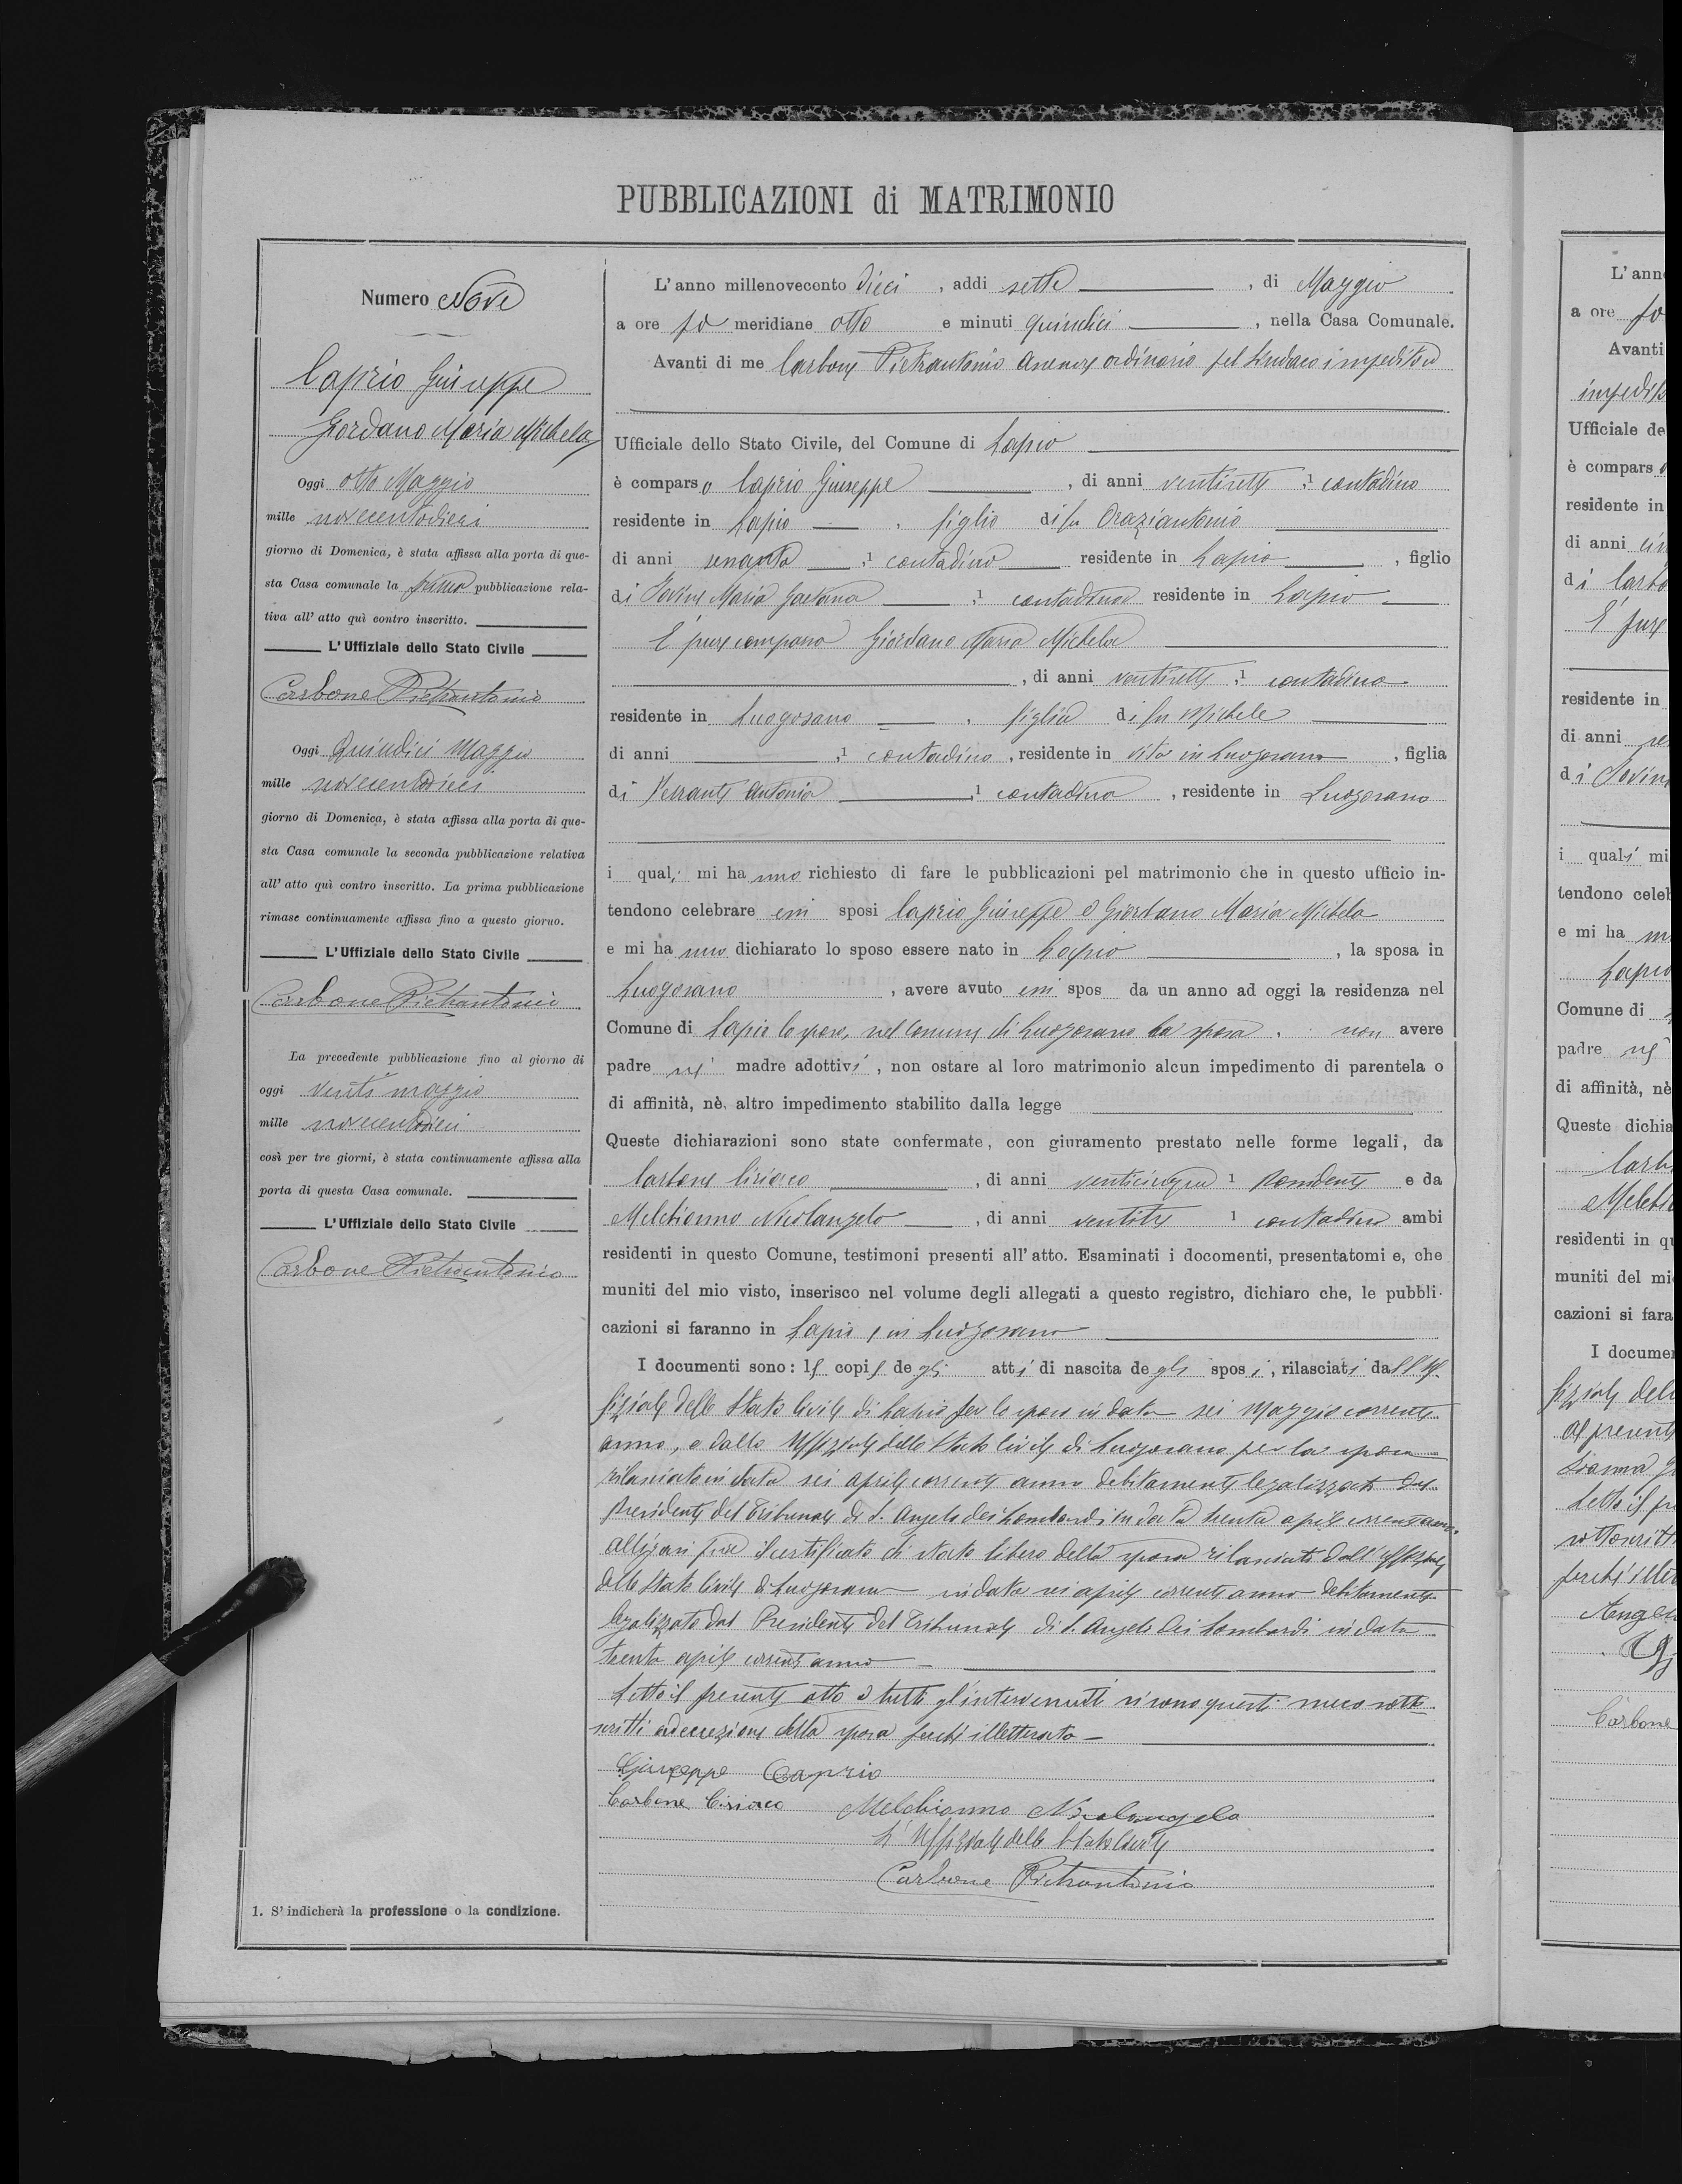 PUBBLICAZIONI di MATRIMONIO
Numero Nove
Caprio Giuseppe
Giordano Maria Michela
Oggi otto Maggio
mille novecentodieci
giorno di Domenica, è stata affissa alla porta di que-
sta Casa comunale la prima pubblicazione rela-
tiva all' atto quì contro inscritto.
L'Uffiziale dello Stato Civile
Carbone Pietrantonio
Oggi Quindici Maggio
mille novecentodieci
giorno di Domenica, è stata affissa alla porta di que-
sta Casa comunale la seconda pubblicazione relativa
all' atto quì contro inscritto. La prima pubblicazione
rimase continuamente affissa fino a questo giorno.
L'Uffiziale dello Stato Civile
Carbone Pietrantonio
La precedente pubblicazione fino al giorno di
oggi venti maggio
mille novecentodieci
così per tre giorni, è stata continuamente affissa alla
porta di questa Casa comunale.
L'Uffiziale dello Stato Civile
Carbone Pietrantonio
1. S' indicherà la professione o la condizione.
L' anno millenovecento dieci, addi sette, di Maggio
a ore po meridiane otto e minuti quindici, nella Casa Comunale.
Avanti di me Carbone Pietrantonio ordinario pel Sindaco impedito
Ufficiale dello Stato Civile, del Comune di Lapio
è comparso Caprio Giuseppe, di anni ventisette, 1 contadino
residente in Lapio, figlio di fu Oraziantonio
di anni senanta, 1 contadino residente in Lapio, figlio
di Iovine Maria Gaetana, 1 contadina residente in Lapio
E' pure comparsa Giordano Maria Michela
, di anni ventisette, 1 contadina
residente in Luogosano, figlia di fu Michele
di anni, 1 contadino, residente in vita in Luogosano, figlia
di Ferrante Antonia, 1 contadina, residente in Luogosano
i quali mi hanno richiesto di fare le pubblicazioni pel matrimonio che in questo ufficio in-
tendono celebrare essi sposi Caprio Giuseppe e Giordano Maria Michela
e mi hanno dichiarato lo sposo essere nato in Lapio, la sposa in
Luogosano, avere avuto essi spos da un anno ad oggi la residenza nel
Comune di Lapio lo sposo, nel Comune di Luogosano la sposa. non avere
padre nè madre adottivi, non ostare al loro matrimonio alcun impedimento di parentela o
di affinità, nè, altro impedimento stabilito dalla legge
Queste dichiarazioni sono state confermate, con giuramento prestato nelle forme legali, da
Carbone Ciriaco, di anni venticinque 1 e da
Melchionno Nicolangelo, di anni ventitre 1 contadino ambi
residenti in questo Comune, testimoni presenti all' atto. Esaminati i docomenti, presentatomi e, che
muniti del mio visto, inserisco nel volume degli allegati a questo registro, dichiaro che, le pubbli-
cazioni si faranno in Lapio e in Luogosano
I documenti sono: le copie degli atti di nascita degli sposi, rilasciati dall'Uf-
fiziale dello Stato Civile di Lapio per lo sposo in data sei Maggio corrente
anno, e dallo Uffiziale dello Stato Civile di Luogosano per la sposa
rilasciata in data sei aprile corrente anno debitamente legalizzata dal
Presidente del Tribunale di S. Angelo dei Lombardi in data trenta aprile corrente anno.
Allegasi pure il certificato di stato libero della sposa rilasciato dall'Uffiziale
dello Stato Civile di Luogosano in data sei aprile corrente anno debitamente
legalizzato dal Presidente del Tribunale di S. Angelo dei Lombardi in data
trenta aprile corrente anno
Letto il presente atto a tutti gl'intervenuti si sono questi meco sotto-
scritti ad eccezione della sposa perchè illetterata
Giuseppe Caprio
Carbone Ciriaco Melchionno Nicolangelo
L'Uffiziale dello Stato Civile
Carbone Pietrantonio
L' ann
a ore po
Avanti
Ufficiale de
è compars
residente in
di anni
di Carbo
E' pure
residente in
di anni
di Iovin
i quali mi
tendono celeb
e mi ha
Lapio
Comune di
padre nè
di affinità, nè
Queste dichia
Carb
Melchi
residenti in qu
muniti del mi
cazioni si fara
I documen
fiziale dell
Letto il pr
sottoscritt
perchè illet
Angel
Carbone